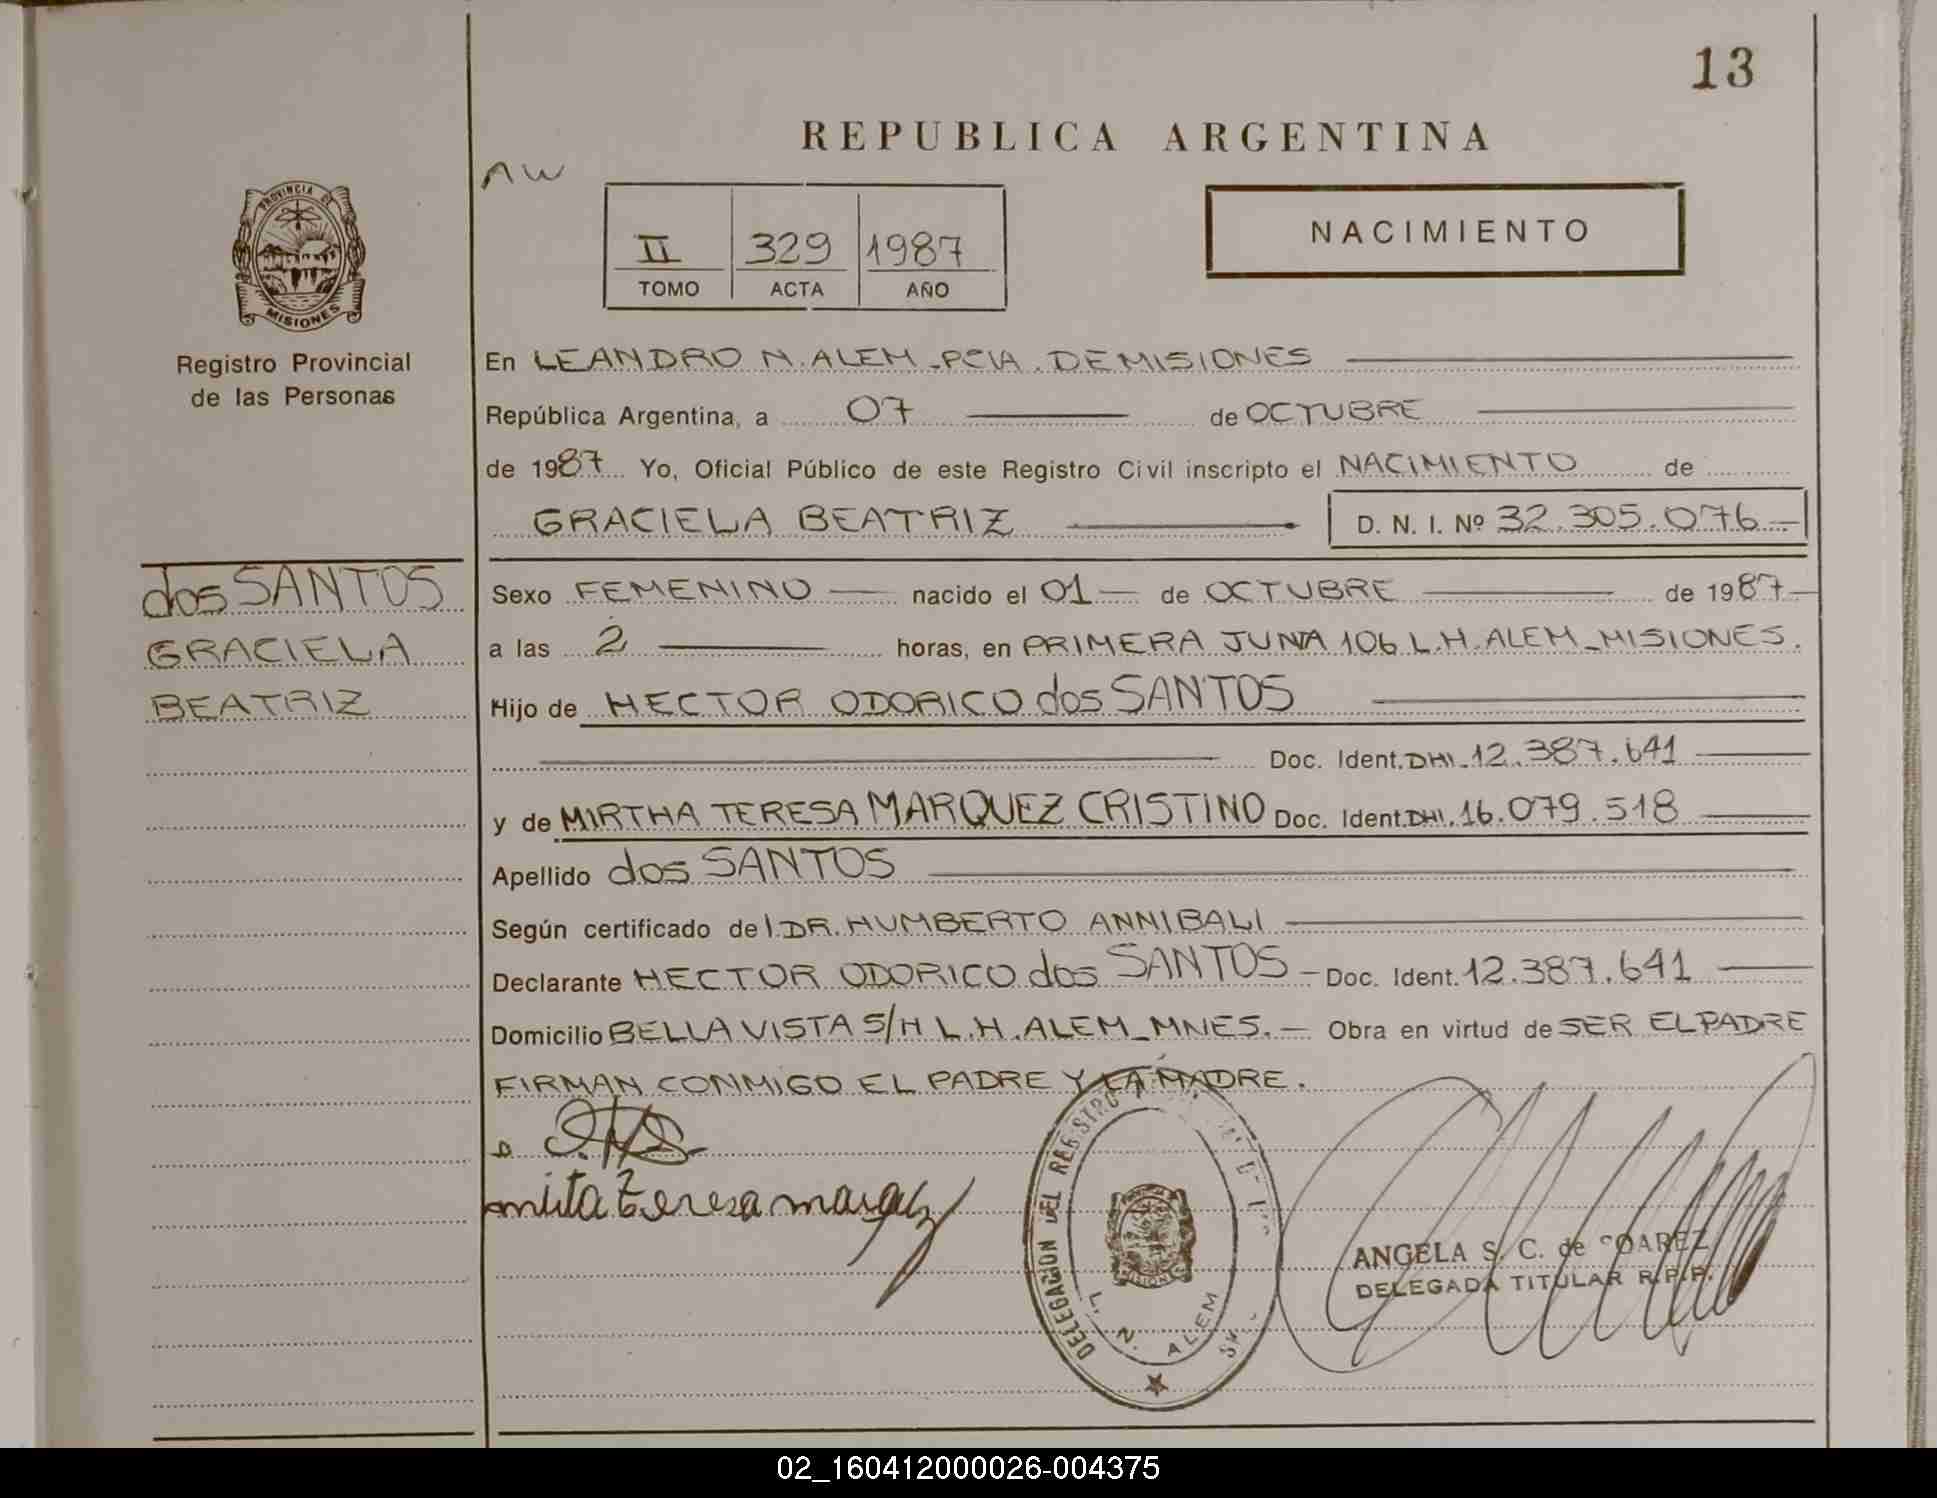 13
REPUBLICA ARGENTINA
NW
PROVINCIA DE
MISIONES
Registro Provincial
de las Personas
II 329 1987
TOMO ACTA AÑO
NACIMIENTO
En LEANDRO N. ALEM - PCIA. DE MISIONES
República Argentina, a 07 de OCTUBRE
de 1987 Yo, Oficial Público de este Registro Civil inscripto el NACIMIENTO de
GRACIELA BEATRIZ D. N. I. Nº 32.305.076 -
dos SANTOS
GRACIELA
BEATRIZ
Sexo FEMENINO nacido el 01 de OCTUBRE de 1987
a las 2 horas, en PRIMERA JUNTA 106 L.N. ALEM - MISIONES.
Hijo de HECTOR ODORICO dos SANTOS
Doc. Ident. DNI. 12.387.641
y de MIRTHA TERESA MARQUEZ CRISTINO Doc. Ident. DNI. 16.079.518
Apellido dos SANTOS
Según certificado del DR. HUMBERTO ANNIBALI
Declarante HECTOR ODORICO dos SANTOS - Doc. Ident. 12.387.641
Domicilio BELLA VISTA S/N L.N. ALEM - MNES. - Obra en virtud de SER EL PADRE
FIRMAN CONMIGO EL PADRE Y LA MADRE.
DELEGACION DEL REGISTRO
L. N. ALEM
MISIONES
ANGELA S. C. de
DELEGADA TITULAR R.P.P.
02_160412000026-004375